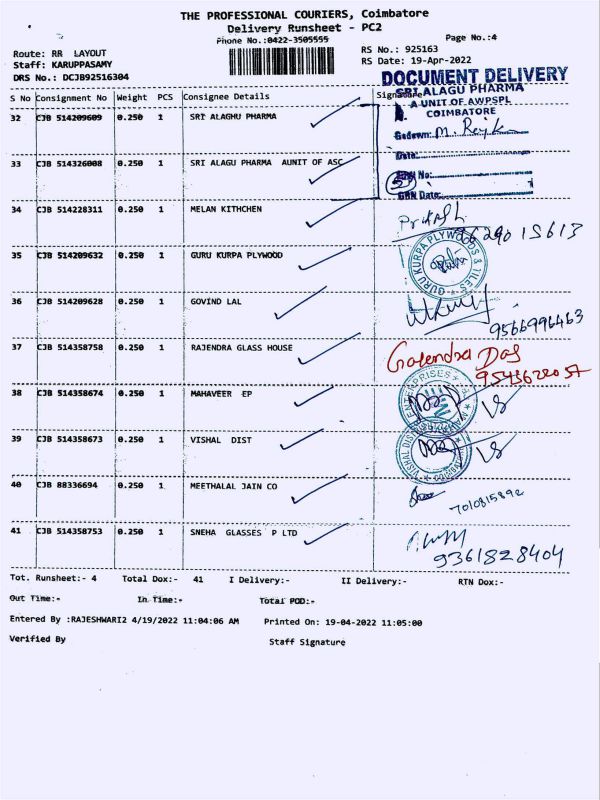 THE PROFESSIONAL COURIERS, Coimbatore
Delivery Runsheet - PC2
Phone No.:0422-3505555
Page No.:4
Route: RR LAYOUT
RS No.: 925163
Staff: KARUPPASAMY
RS Date: 19-Apr-2022
DRS No.: DCJB92516304
DOCUMENT DELIVERY
SRI ALAGU PHARMA
A UNIT OF AWPSPL
COIMBATORE
S No Consignment No Weight PCS Consignee Details Signature
32 CJB 514209609 0.250 1 SRI ALAGHU PHARMA
Godown:
Date:
33 CJB 514326008 0.250 1 SRI ALAGU PHARMA AUNIT OF ASC
GRN No:
GRN Date:
34 CJB 514228311 0.250 1 MELAN KITHCHEN
96290 15613
35 CJB 514209632 0.250 1 GURU KURPA PLYWOOD
GURU KURPA PLYWOODS & TILES
36 CJB 514209628 0.250 1 GOVIND LAL
9566996463
37 CJB 514358758 0.250 1 RAJENDRA GLASS HOUSE
Gajendra Das
38 CJB 514358674 0.250 1 MAHAVEER EP
39 CJB 514358673 0.250 1 VISHAL DIST
40 CJB 88336694 0.250 1 MEETHALAL JAIN CO
7010815892
41 CJB 514358753 0.250 1 SNEHA GLASSES P LTD
9361828404
Tot. Runsheet:- 4 Total Dox:- 41 I Delivery:- II Delivery:- RTN Dox:-
Out Time:- In Time:- Total POD:-
Entered By :RAJESHWARI2 4/19/2022 11:04:06 AM Printed On: 19-04-2022 11:05:00
Verified By Staff Signature